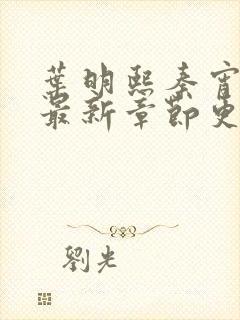 葉明熙秦宵
最新章節史
劉光